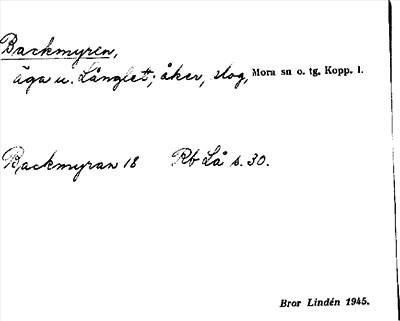 Backmyren,
äga u. Långlet; åker, slog, Mora sn o. tg. Kopp. l.
Backmyran 18 Rb Lå s. 30.
Bror Lindén 1945.